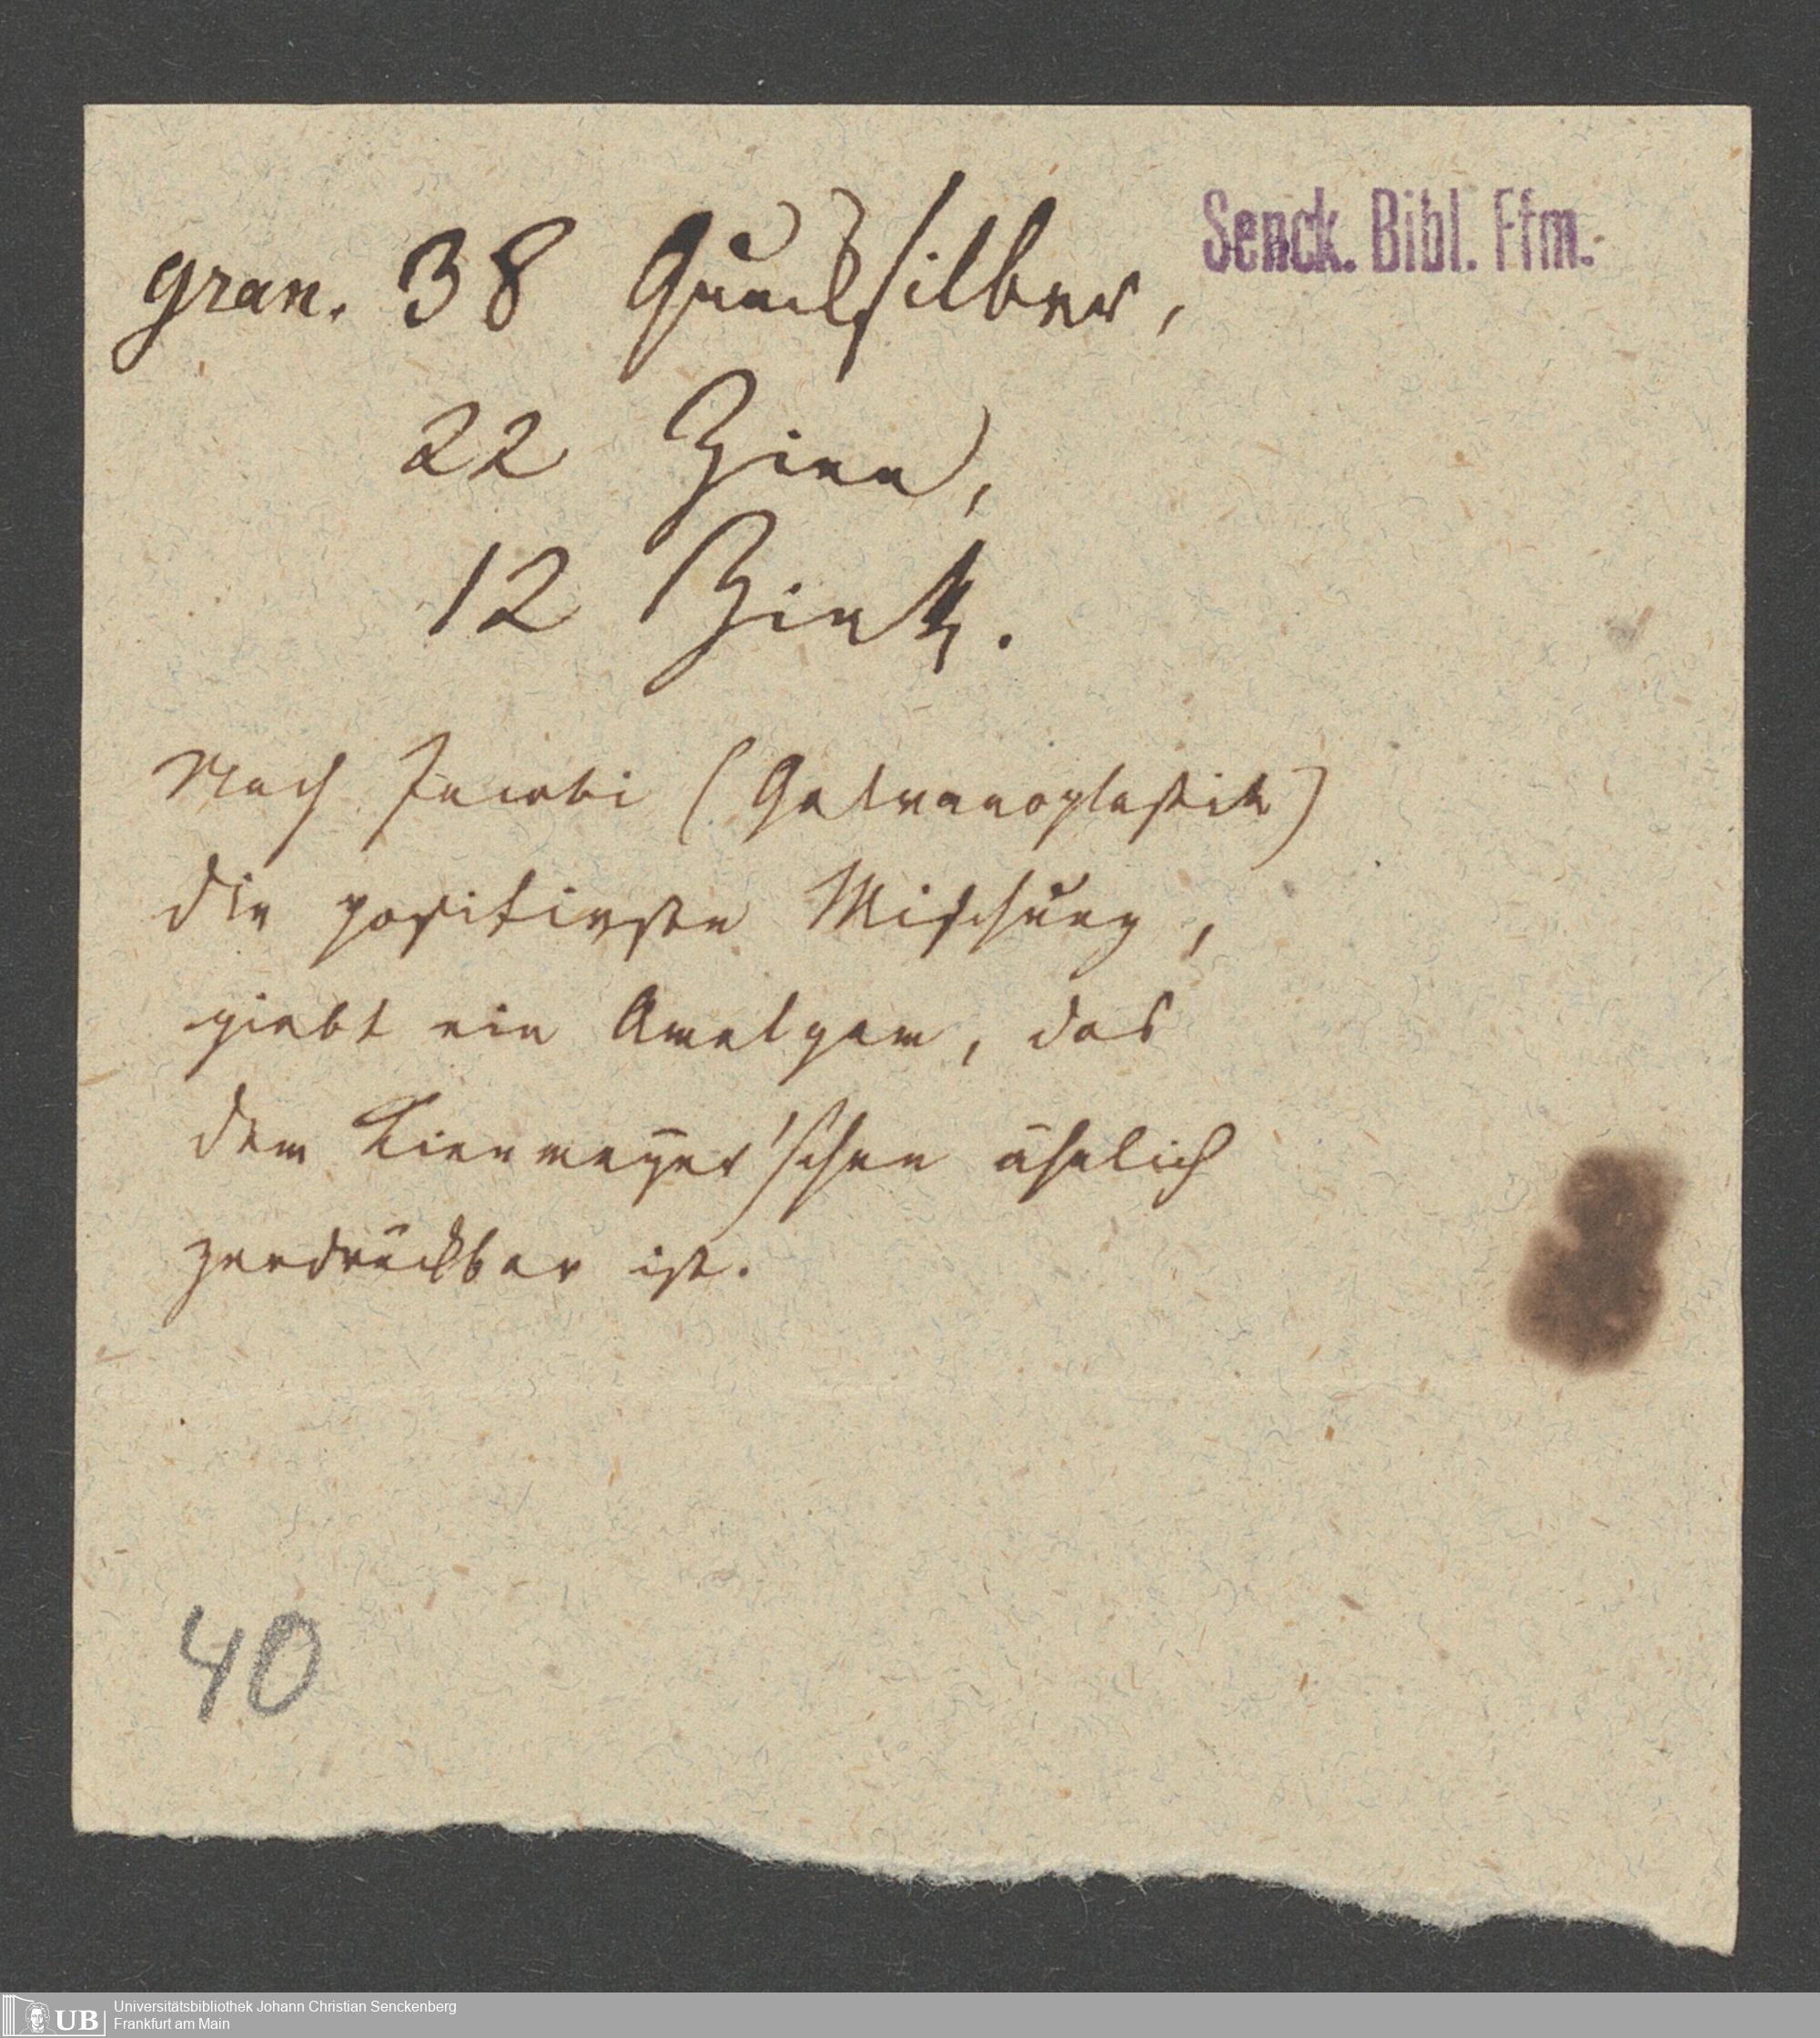 gran. 38 Quecksilber,
Senck. Bibl. Ffm.
22 Zinn,
12 Zink.
Nach Jacobi (Galvanoplastik)
die positivste Mischung,
giebt ein Amalgam, das
dem Kienmayer'schen ähnlich
zerdrückbar ist.
40
UB
Universitätsbibliothek Johann Christian Senckenberg
Frankfurt am Main